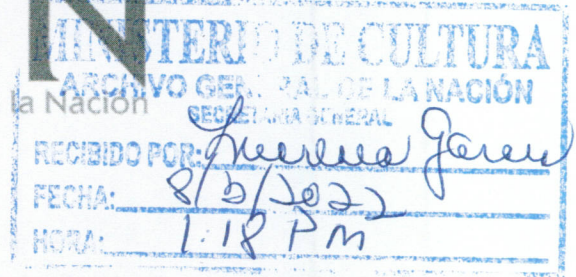 N
MINISTERIO DE CULTURA
ARCHIVO GENERAL DE LA NACIÓN
la Nación
SECRETARIA GENERAL
RECIBIDO POR:
FECHA: 8/5/2022
HORA: 1:18 PM